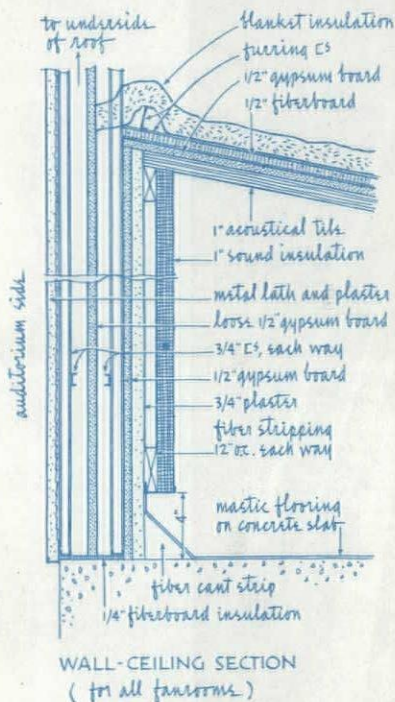 to underside
of roof
blanket insulation
furring [s
1/2" gypsum board
1/2" fiberboard
1" acoustical tile
1" sound insulation
metal lath and plaster
loose 1/2" gypsum board
3/4" [s, each way
1/2" gypsum board
3/4" plaster
fiber stripping
12" o.c. each way
auditorium side
4"
mastic flooring
on concrete slab
fiber cant strip
1/4" fiberboard insulation
WALL-CEILING SECTION
(for all fanrooms)